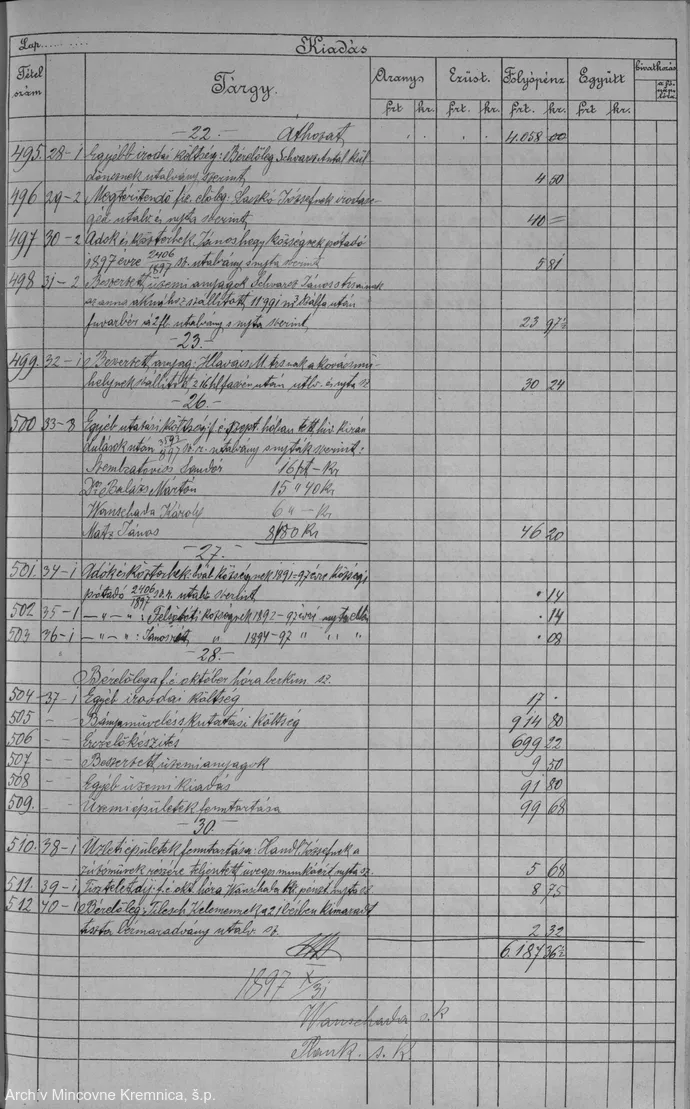 Lap. Kiadás
Tétel szám Tárgy. Arany Ezüst. Folyópénz Együtt Hivatkozás
frt kr. frt. kr. frt. kr. frt. kr.
—22.— Áthozat, 4.058 00
495. 28-1 Egyébb irodai költség: Bérelőleg Schvarz Antal kül
döncznek utalvány szerint, 4 50
496 29-2 Megtérítendő
utalv. és nyta szerint, 40 =
497 30-2 Adók és köztörhek, Jánoshegy községnek pótadó
1897 évre 2406/1897 sz. utalvány s nyta szerint, 5 81
498 31-2 Beszerzett, üzemi anyagok Schvarcz János
szállított, 11.991 m3 után
fuvarbér á 2 ft. utalvány s nyta szerint, 23 97½
—23.—
499. 32-1 Beszerzett, anyag: Hlavács M. a kovácsmű-
helynek szállított, után utlv. és nyta sz. 30 24
—26.—
500 33-8 Egyéb utazási költség f. é. szept. hóban tett, kirán
dulások után sz. utalvány s nyták szerint:
Sándor 16 frt — Kr
Dr. Balázs Márton 15 " 40 Kr
Wanschada Károly 6 " — Kr
Mátz János 8 80 Kr 46 20
—27.—
501. 34-1 Adók és köztörhek községnek 1891-97 évre községi
pótadó 2406/1897 sz. utalv. szerint, . 14
502 35-1 —"—"— : községnek 1892-97 évi . 14
503 36-1 —"—"— : Jánosrét, " 1894-97 " " " . 08
—28.—
Bérelőleg a f. é. október hóra sz.
504 -37-1 Egyéb irodai költség 17 .
505 - - Bányaművelés s kutatási költség 914 80
506 - - Érczelőkészítés 699 22
507 - - Beszerzett, üzemi anyagok 9 50
508 - - Egyéb üzemi kiadás 91 80
509. - - Üzemi épületek fenntartása 99 68
—30.—
510. 38-1 Üzleti épületek fenntartása: Handl Józsefnek a
zúzóművek részére teljesített, üveges munkáért nyta sz. 5 68
511. 39-1 Tiszteletdíj f. é. okt. hóra Wanschada nyta sz. 8 75
512 40-1 Bérelőleg: Flesch Kelemennek a 21 bérben kimaradt
tiszta bérmaradvány utalv. sz. 2 32
6.187 36½
1897 X/31
Wanschada s. k
Plank. s. k.
Archív Mincovne Kremnica, š.p.